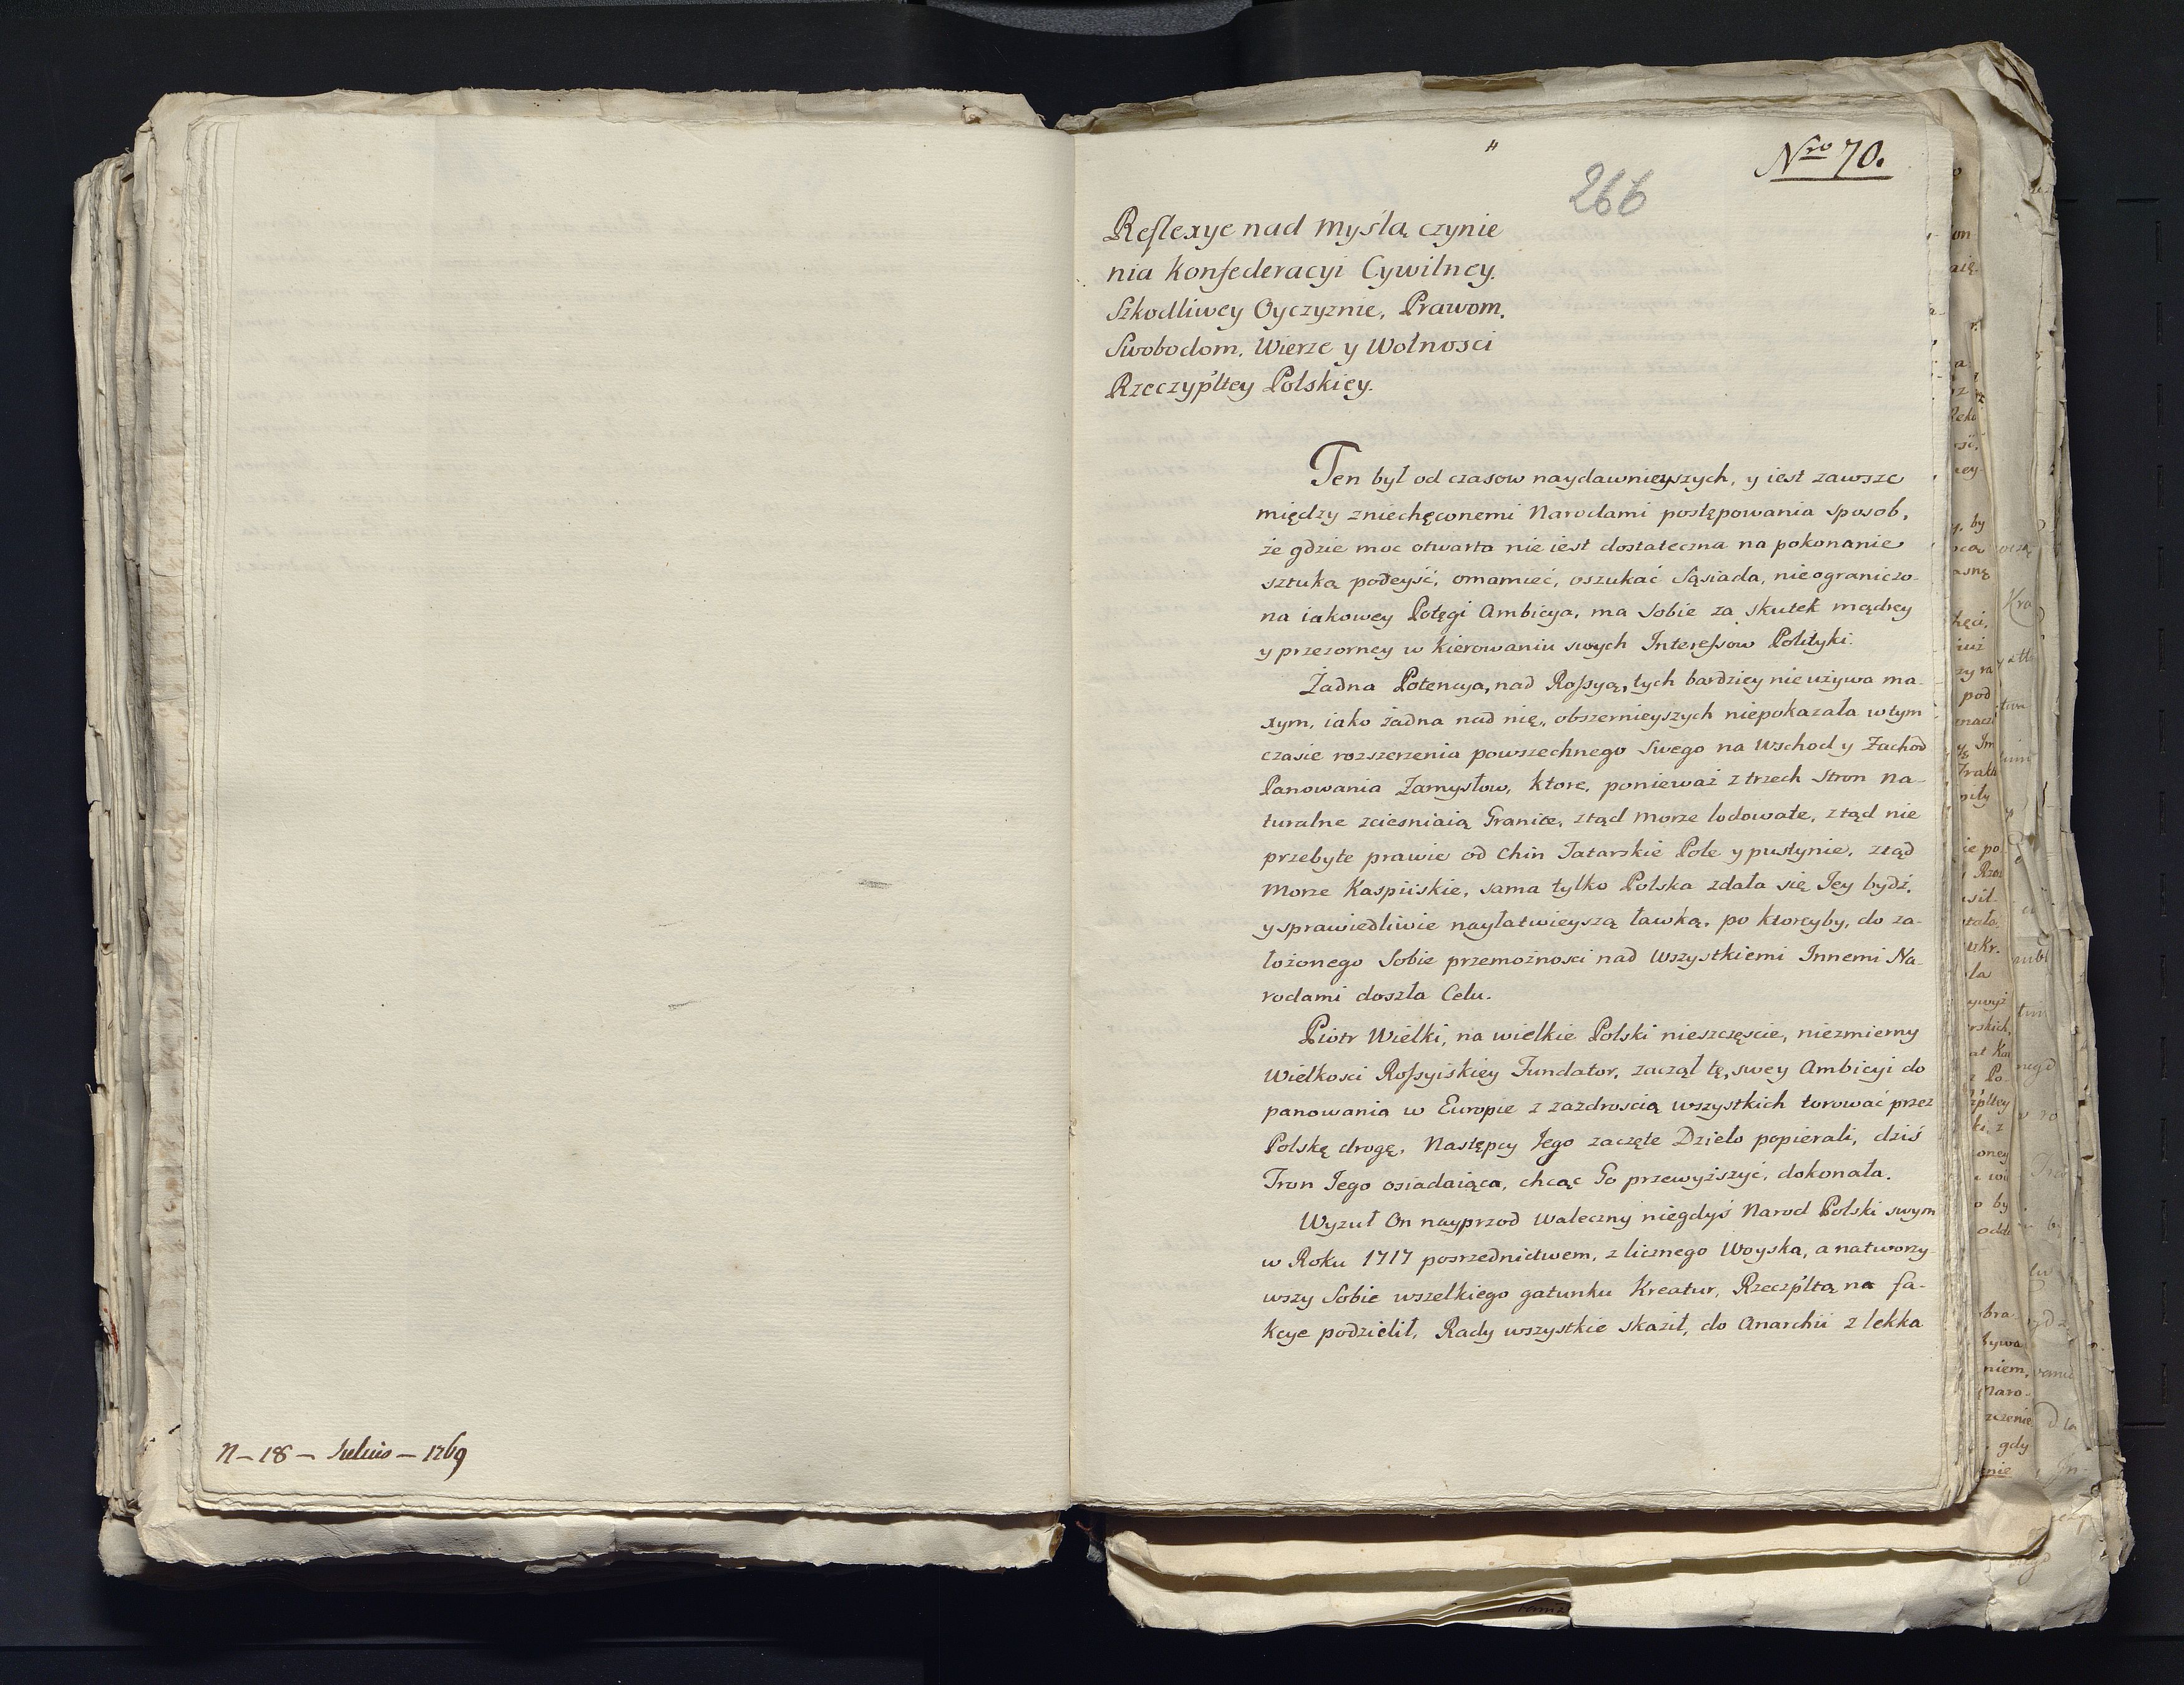 N – 18 – Julius – 1769
Nro 70.
266
Reflexye nad myślą czynie
nia Konfederacyi Cywilney.
Szkodliwey Oyczyznie, Prawom,
Swobodom, Wierze y Wolnosci
Rzeczyp'ltey Polskiey.
Ten był od czasow naydawnieyszych, y iest zawsze
między zniechęconemi Narodami postępowania sposob,
że gdzie moc otwarta nie iest dostateczna na pokonanie
sztuką podeyść, omamieć, oszukać Sąsiada, nieograniczo-
na iakowey Potęgi Ambicya, ma Sobie za skutek mądrey
y przezorney w kierowaniu swych Interessow Polityki.
Żadna Potencya, nad Rossyą, tych bardziey nie używa ma-
xym, iako żadna nad nię, obszernieyszych niepokazała w tym
czasie rozszerzenia powszechnego Swego na Wschod y Zachod
Panowania Zamysłow, ktore, ponieważ z trzech Stron na-
turalne zciesniaią Granice, ztąd Morze lodowate, ztąd nie
przebyte prawie od Chin Tatarskie Pole y pustynie, ztąd
Morze Kaspiiskie, sama tylko Polska zdała się Jey bydź,
y sprawiedliwie nayłatwieyszą ławką, po ktoreyby, do za-
łożonego Sobie przemożnosci nad Wszystkiemi Innemi Na-
rodami doszła Celu.
Piotr Wielki, na wielkie Polski nieszczęscie, niezmierny
Wielkosci Rossyiskiey Fundator, zaczął tę, swey Ambicyi do
panowania w Europie z zazdroscią wszystkich torować przez
Polskę drogę, Następcy Jego zaczęte Dzieło popierali, dziś
Tron Jego osiadaiąca, chcąc Go przewyższyć, dokonała.
Wyzuł On nayprzod waleczny niegdyś Narod Polski swym
w Roku 1717 posrzednictwem, z licznego Woyska, a natworzy-
wszy Sobie wszelkiego gatunku Kreatur, Rzeczp'ltą na fa-
kcye podzielił, Rady wszystkie skaził, do Anarchii z lekka